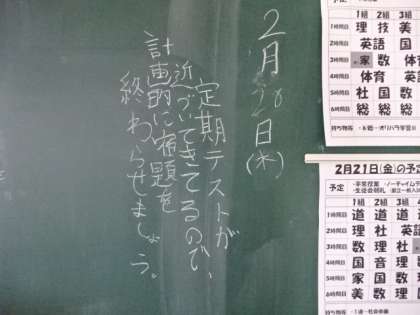 2月20日(木)
定期テストが
近づいてきてるので、
計画的に宿題を
終わらせましょう。
予定
1組 2組 3組
1時間目 理 技 美
2時間目 英語 国
3時間目 家 数 体
4時間目 体育 英
5時間目 社 国 数
6時間目 総 総 総
持ち物等
2月21日(金)の予
予定
1組 2組 3
1時間目 道 道 道
2時間目 理 社 英
3時間目 数 理 社
4時間目 国 音 理
5時間目 家 国 数
6時間目 美 数 理
持ち物等